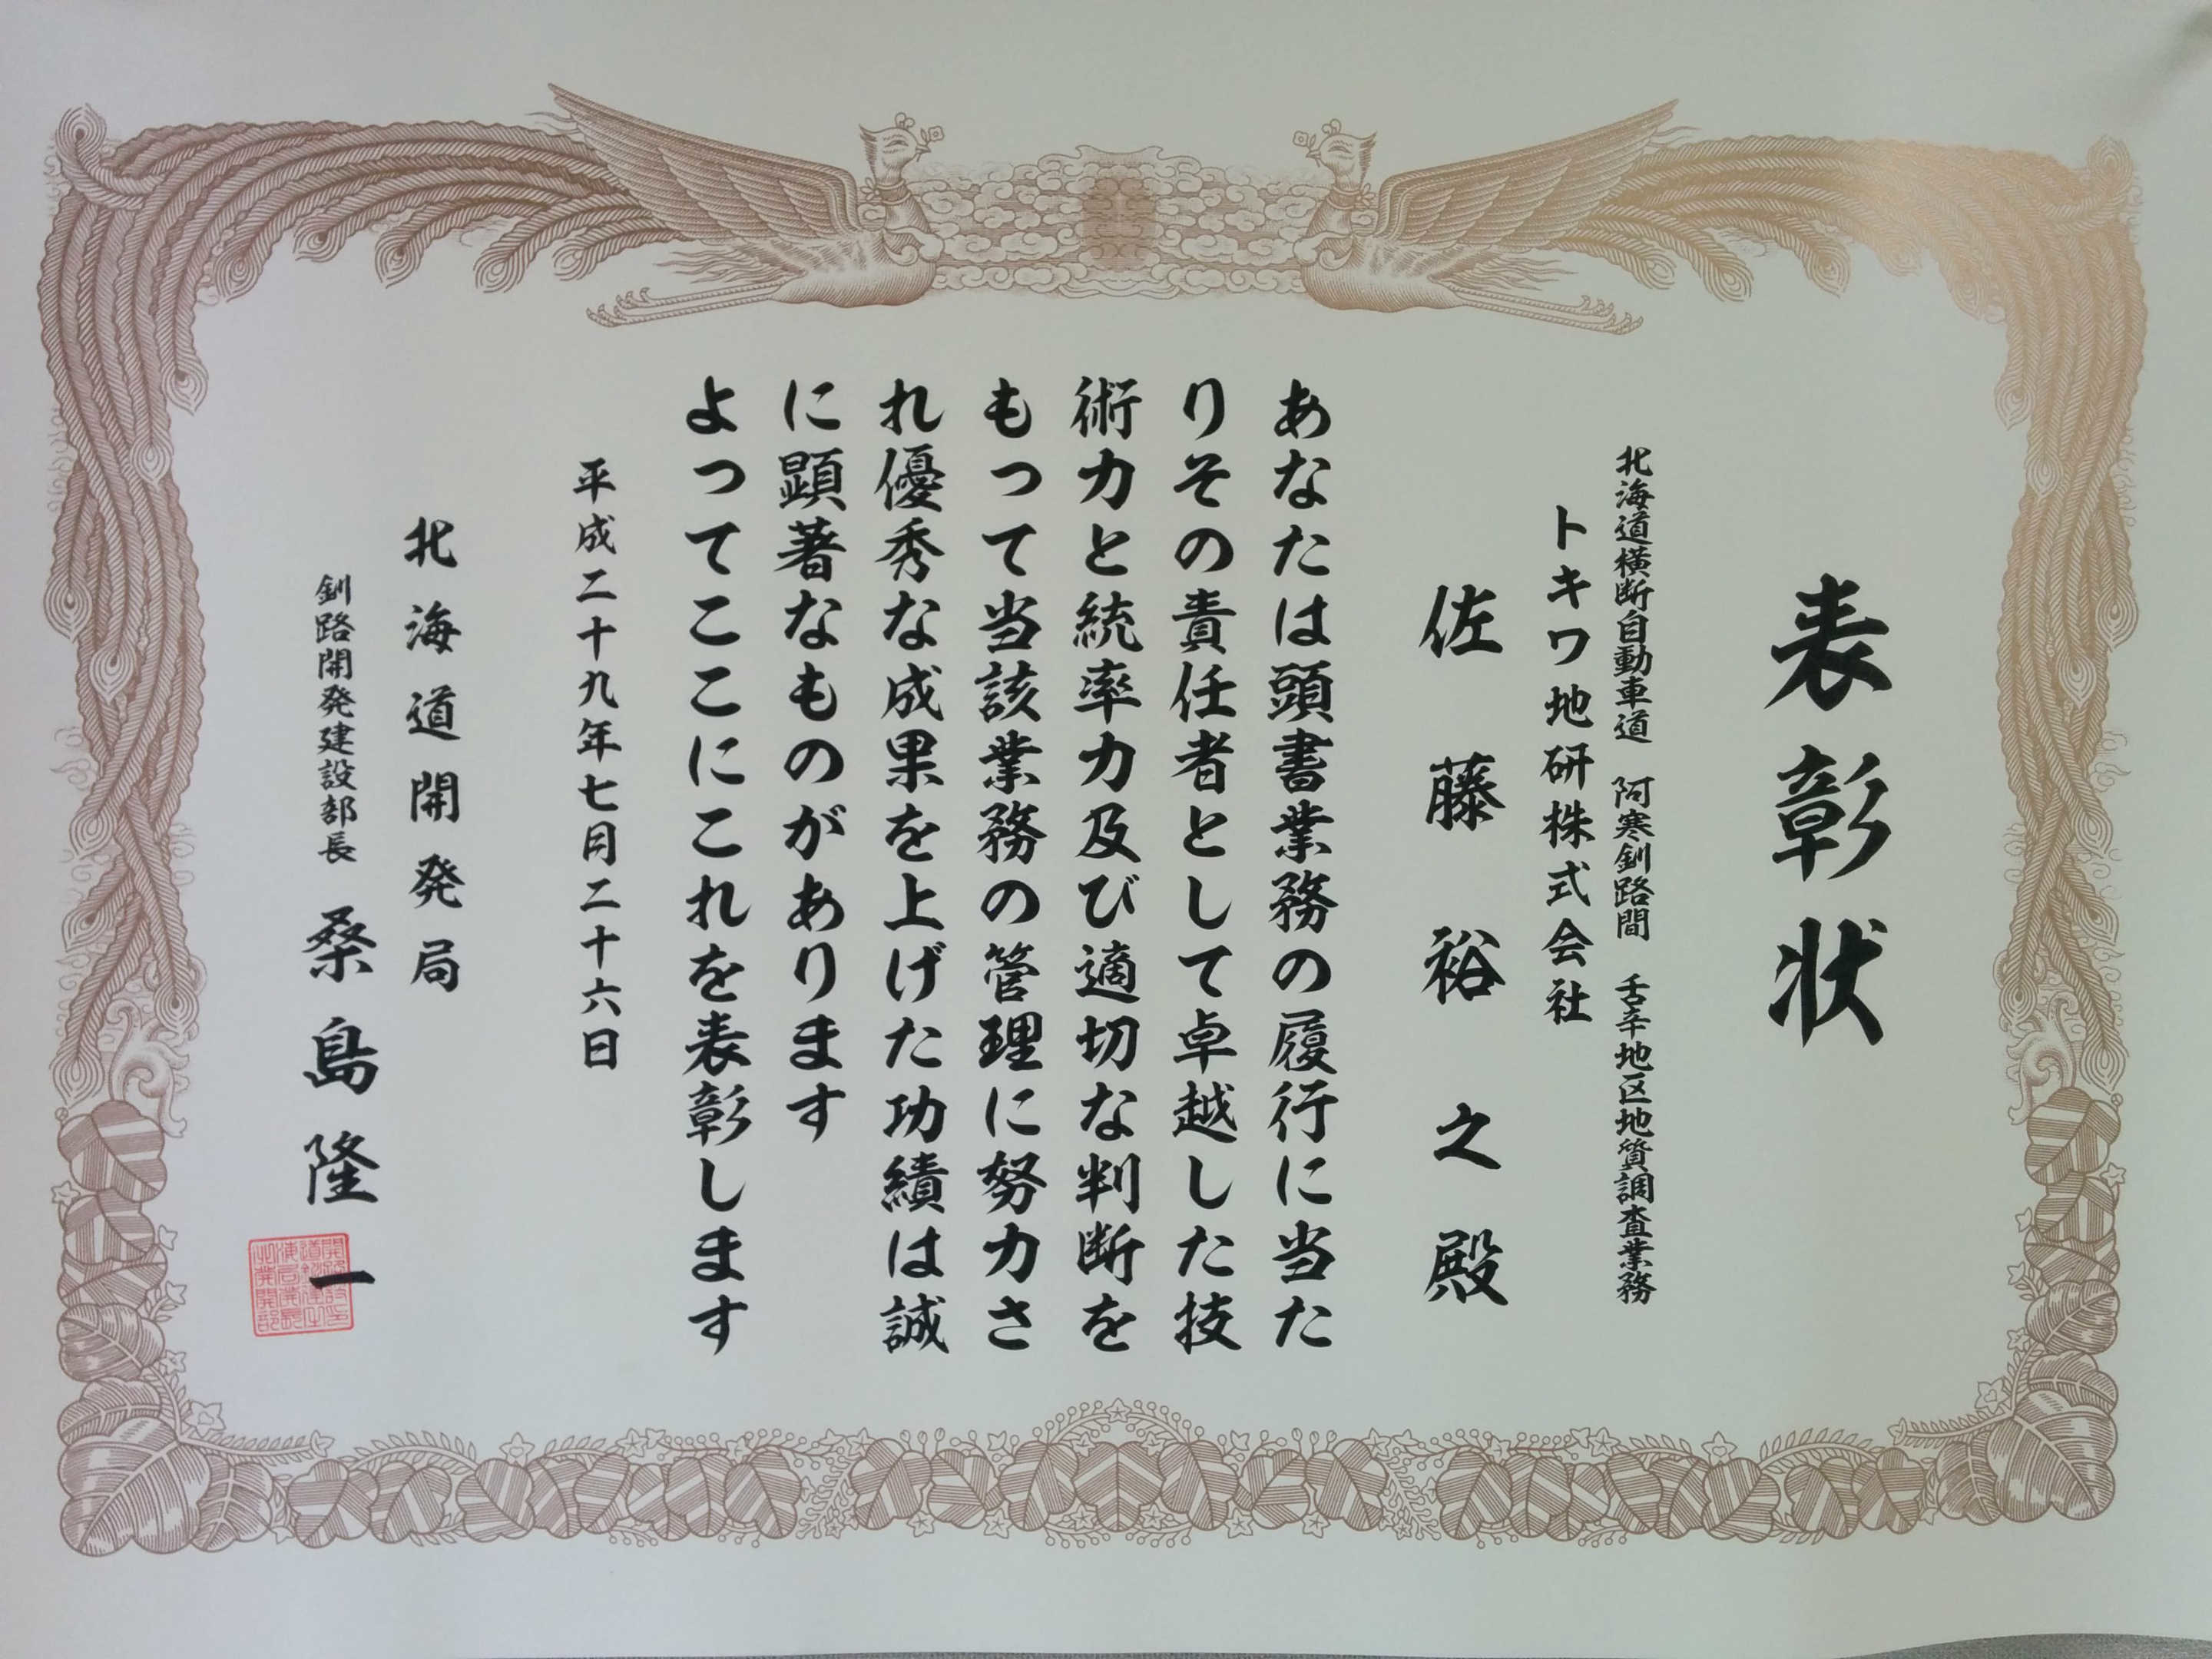 表彰状
北海道横断自動車道 阿寒釧路間 舌辛地区地質調査業務
トキワ地研株式会社
佐藤裕之殿
あなたは頭書業務の履行に当た
りその責任者として卓越した技
術力と統率力及び適切な判断を
もって当該業務の管理に努力さ
れ優秀な成果を上げた功績は誠
に顕著なものがあります
よってここにこれを表彰します
平成二十九年七月二十六日
北海道開発局
釧路開発建設部長 桑島隆一